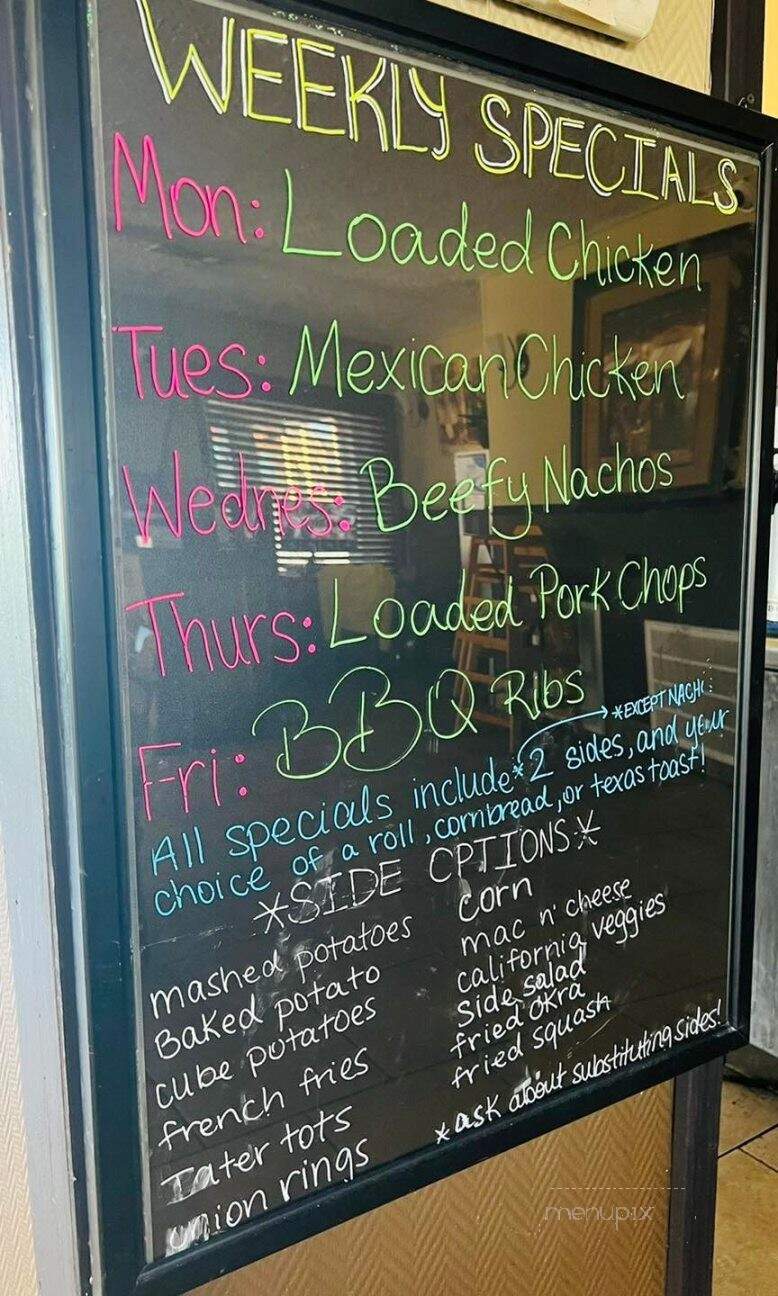 WEEKLY SPECIALS
Mon: Loaded Chicken
Tues: Mexican Chicken
Wednes: Beefy Nachos
Thurs: Loaded Pork Chops
Fri: BBQ Ribs
*EXCEPT
All specials include *2 sides, and your
choice of a roll, cornbread, or texas toast!
*SIDE OPTIONS*
mashed potatoes
Baked potato
cube potatoes
french fries
Tater tots
onion rings
corn
mac n' cheese
california veggies
Side salad
fried okra
fried squash
*ask about substituting sides!
menupix